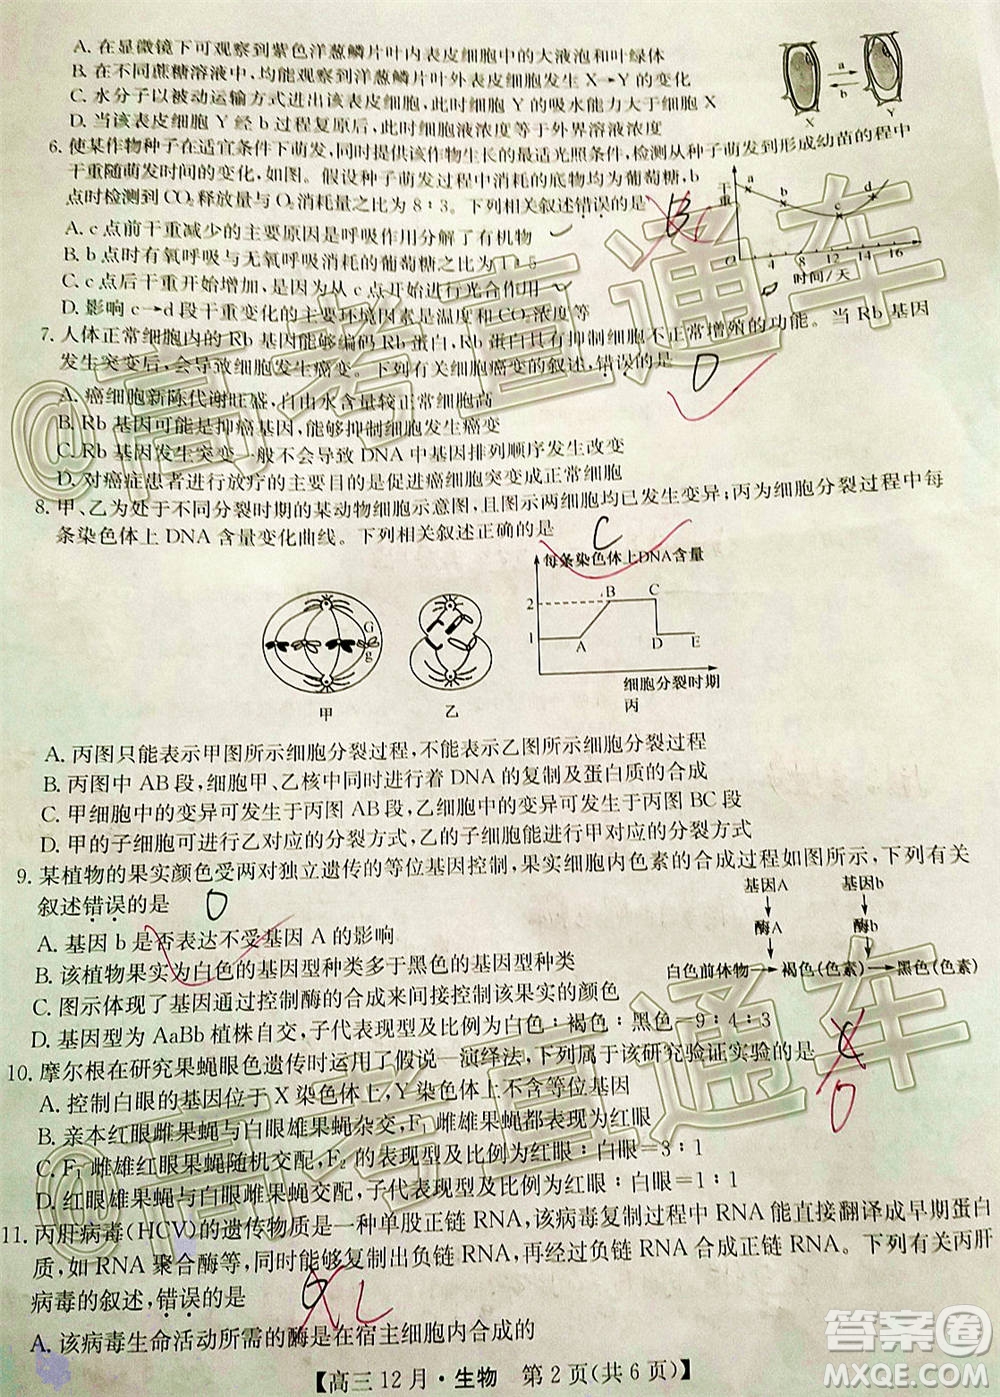 A. 在显微镜下可观察到紫色洋葱鳞片叶内表皮细胞中的大液泡和叶绿体
B. 在不同蔗糖溶液中,均能观察到洋葱鳞片叶外表皮细胞发生 X→Y 的变化
C. 水分子以被动运输方式进出表皮细胞,此时细胞 Y 的吸水能力大于细胞 X
D. 当该表皮细胞 Y 经 b 过程复原后,此时细胞液浓度等于外界溶液浓度
a
b
X
Y
6. 使某作物种子在适宜条件下萌发,同时提供该作物生长的最适光照条件,检测从种子萌发到形成幼苗的程中
干重随萌发时间的变化,如图。假设种子萌发过程中消耗的底物均为葡萄糖,b
点时检测到 CO₂ 释放量与 O₂ 消耗量之比为 8∶3。下列相关叙述错误的是
B
A. c 点前干重减少的主要原因是呼吸作用分解了有机物
B. b 点时有氧呼吸与无氧呼吸消耗的葡萄糖之比为 1∶5
C. c 点后干重开始增加,说明从 c 点开始进行光合作用
D. 影响 c→d 段干重变化的主要环境因素是温度和 CO₂ 浓度等
干重
a
b
c
d
O
4 8 12 14 16
时间/天
7. 人体正常细胞内的 Rb 基因能够编码 Rb 蛋白,Rb 蛋白具有抑制细胞不正常增殖的功能。当 Rb 基因
发生突变后,会导致细胞发生癌变。下列相关叙述,错误的是
D
A. 癌细胞新陈代谢旺盛,自由水含量较高
B. Rb 基因可能是抑癌基因,能够抑制细胞发生癌变
C. Rb 基因发生突变一般不会导致 DNA 中基因排列顺序发生改变
D. 对癌症患者进行放疗的主要目的是促使癌细胞突变成正常细胞
8. 甲、乙为处于不同分裂时期的某动物细胞示意图,且图示两细胞均已发生变异;丙为细胞分裂过程中每
条染色体上 DNA 含量变化曲线。下列相关叙述正确的是
C
G
g
甲
乙
每条染色体上DNA含量
2
1
A
B
C
D
E
细胞分裂时期
丙
A. 丙图只能表示甲图所示细胞分裂过程,不能表示乙图所示细胞分裂过程
B. 丙图中 AB 段,细胞甲、乙核中同时进行着 DNA 的复制及蛋白质的合成
C. 甲细胞中的变异可发生于丙图 AB 段,乙细胞中的变异可发生于丙图 BC 段
D. 甲的子细胞可进行乙对应的分裂方式,乙的子细胞能进行甲对应的分裂方式
9. 某植物的果实颜色受两对独立遗传的等位基因控制,果实细胞内色素的合成过程如图所示,下列有关
叙述错误的是
D
A. 基因 b 是否表达不受基因 A 的影响
B. 该植物果实为白色的基因型种类多于黑色的基因型种类
C. 图示体现了基因通过控制酶的合成来间接控制该果实的颜色
D. 基因型为 AaBb 植株自交,子代表现型及比例为白色∶褐色∶黑色=9∶4∶3
基因A
基因b
酶A
酶b
白色前体物→褐色(色素)→黑色(色素)
10. 摩尔根在研究果蝇眼色遗传时运用了假说—演绎法,下列属于该研究验证实验的是
C
D
A. 控制白眼的基因位于 X 染色体上,Y 染色体上没有
B. 亲本红眼雌果蝇与白眼雄果蝇杂交,F₁ 雌雄果蝇都表现为红眼
C. F₁ 雌雄红眼果蝇随机交配,F₂ 的表现型及比例为红眼∶白眼=3∶1
D. 红眼雄果蝇与白眼雌果蝇交配,子代表现型及比例为红眼∶白眼=1∶1
11. 丙肝病毒(HCV)的遗传物质是一种单股正链 RNA,该病毒复制过程中 RNA 能直接翻译成早期蛋白
质,如 RNA 聚合酶等,然后复制出负链 RNA,再经过负链 RNA 合成正链 RNA。下列有关丙肝
病毒的叙述,错误的是
A. 该病毒生命活动所需的酶是在宿主细胞内合成的
【高三12月·生物 第 2 页(共 6 页)】
@高考直通车
@高考直通车
答案圈
MXQE.COM